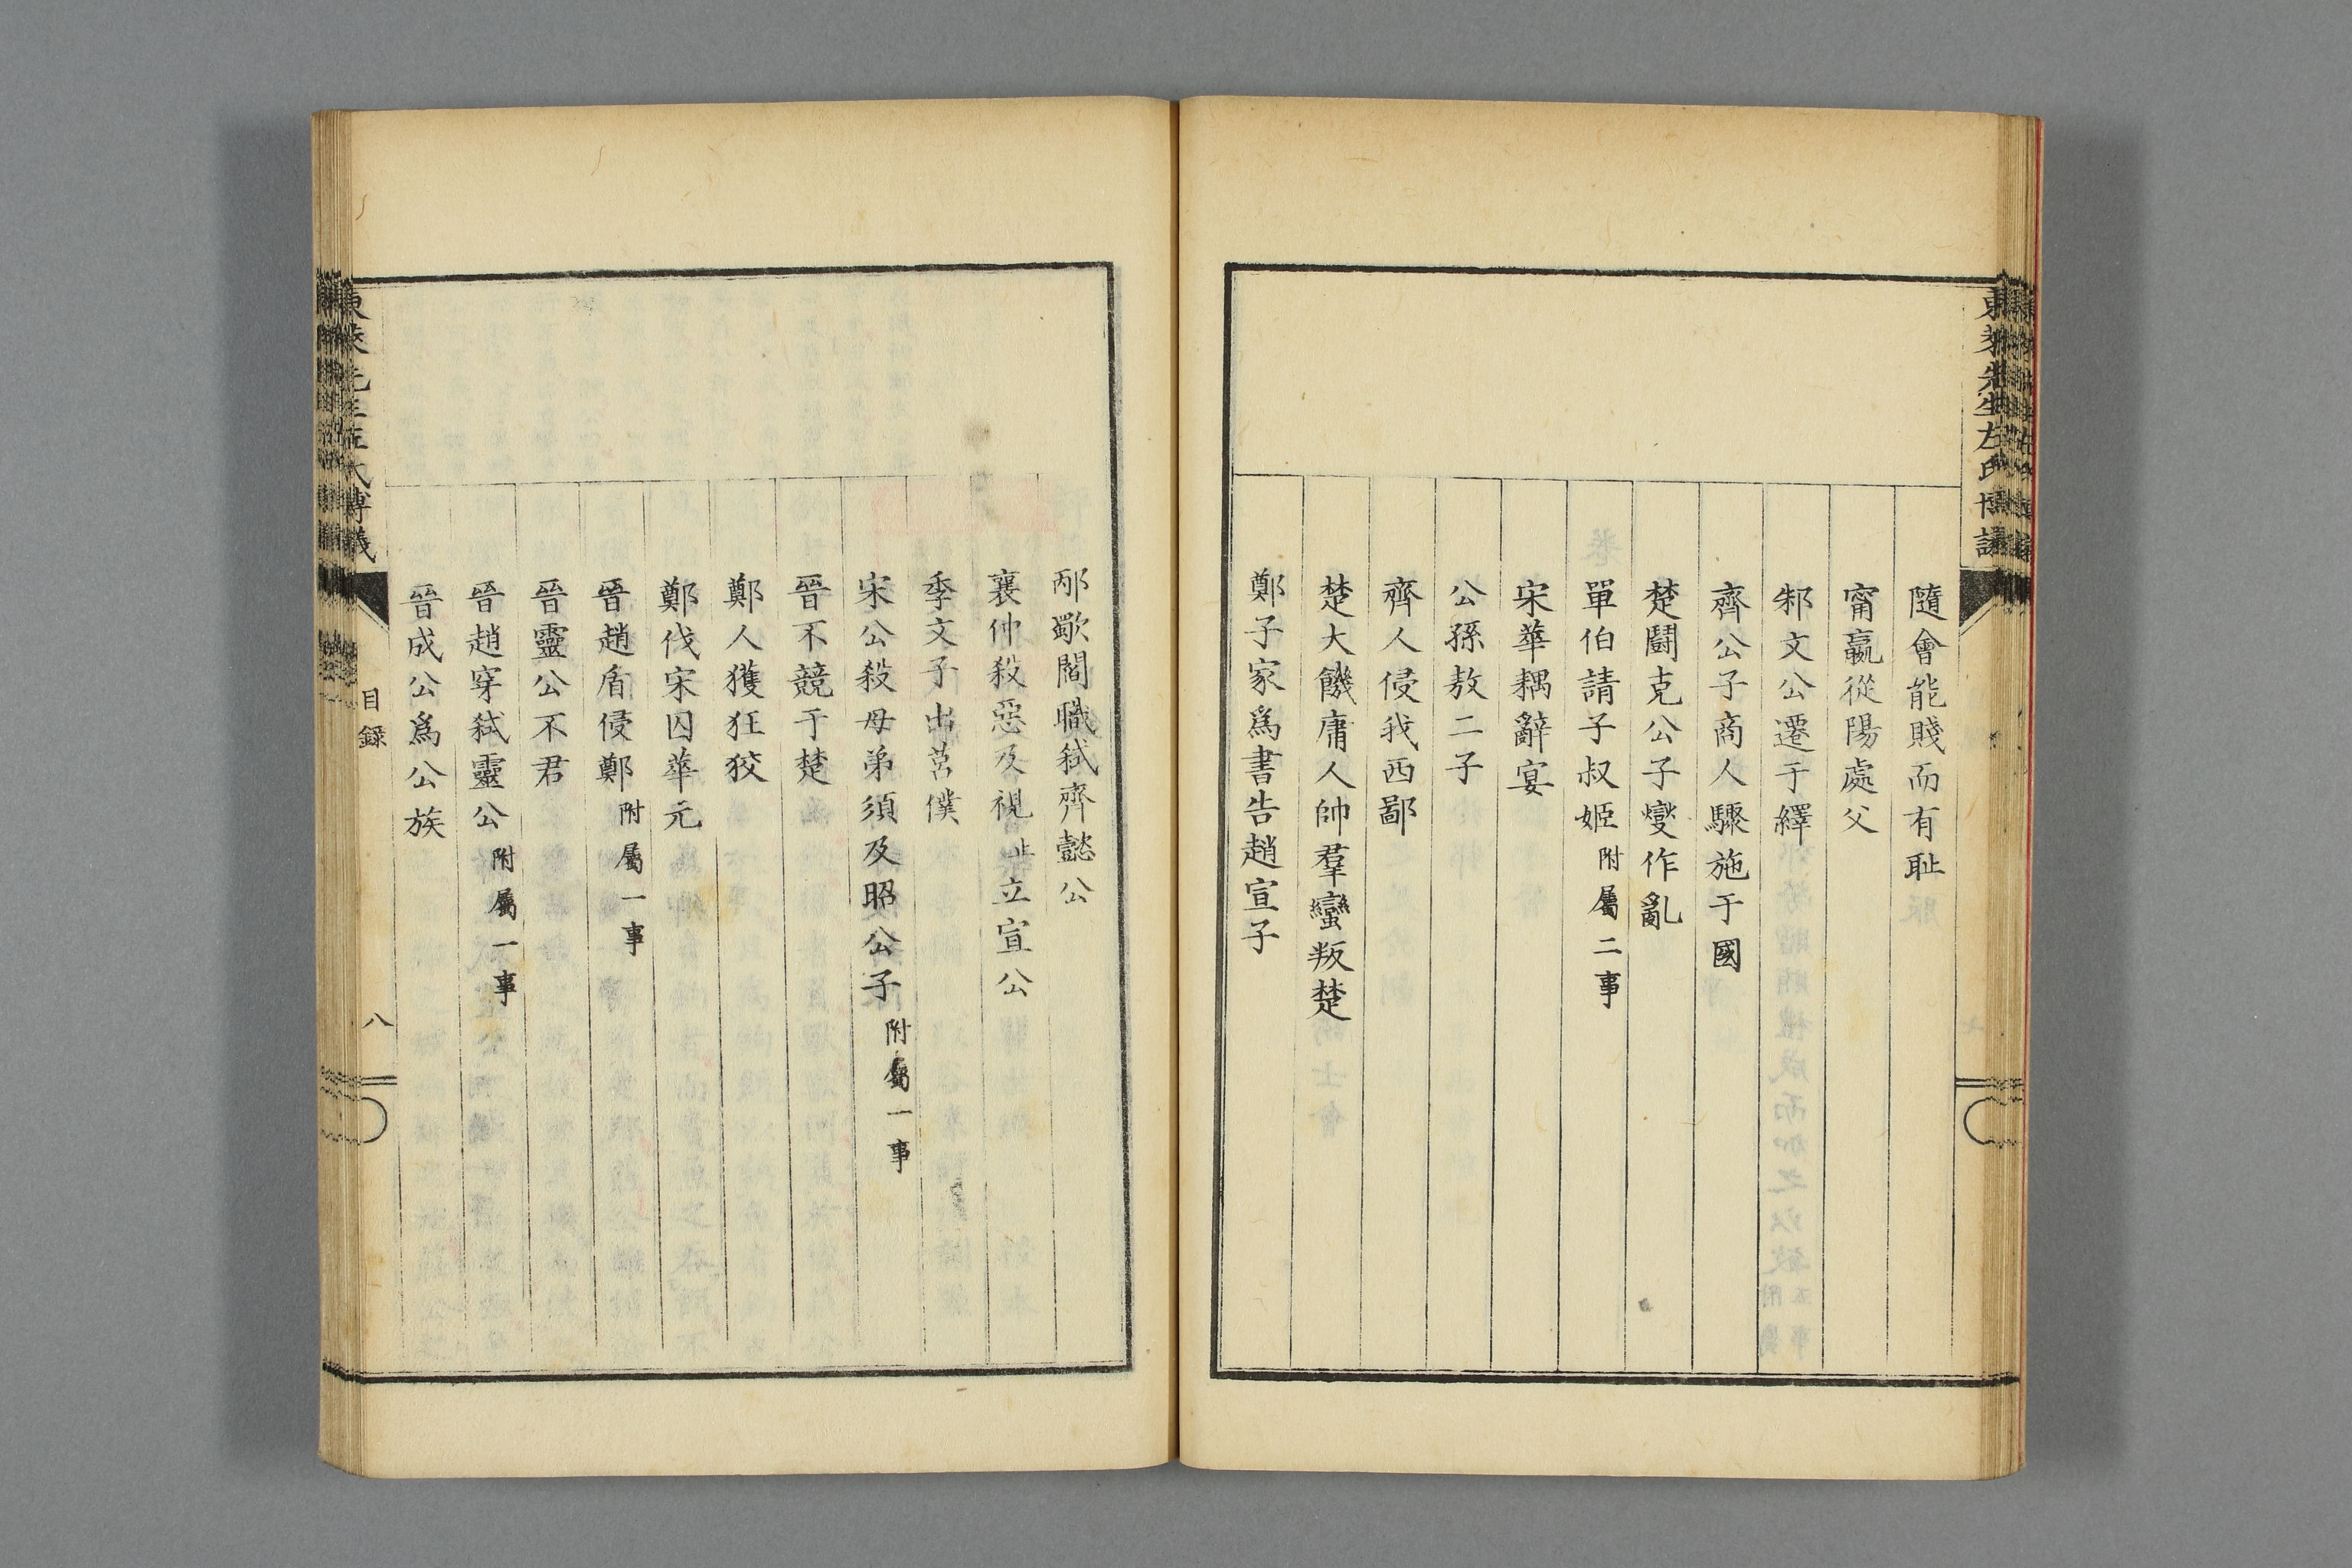 隨會能賤而有恥
甯嬴從陽處父
邾文公遷于繹
齊公子商人驟施于國
楚鬪克公子燮作亂
單伯請子叔姬附屬二事
宋華耦辭宴
公孫敖二子
齊人侵我西鄙
楚大饑庸人帥羣蠻叛楚
鄭子家爲書告趙宣子
東萊先生左氏博議
邴歜閻職弑齊懿公
襄仲殺惡及視止立宣公
季文子出莒僕
宋公殺母弟須及昭公子附屬一事
晉不競于楚
鄭人獲狂狡
鄭伐宋囚華元
晉趙盾侵鄭附屬一事
晉靈公不君
晉趙穿弑靈公附屬一事
晉成公爲公族
東萊先生左氏博議
目錄
八